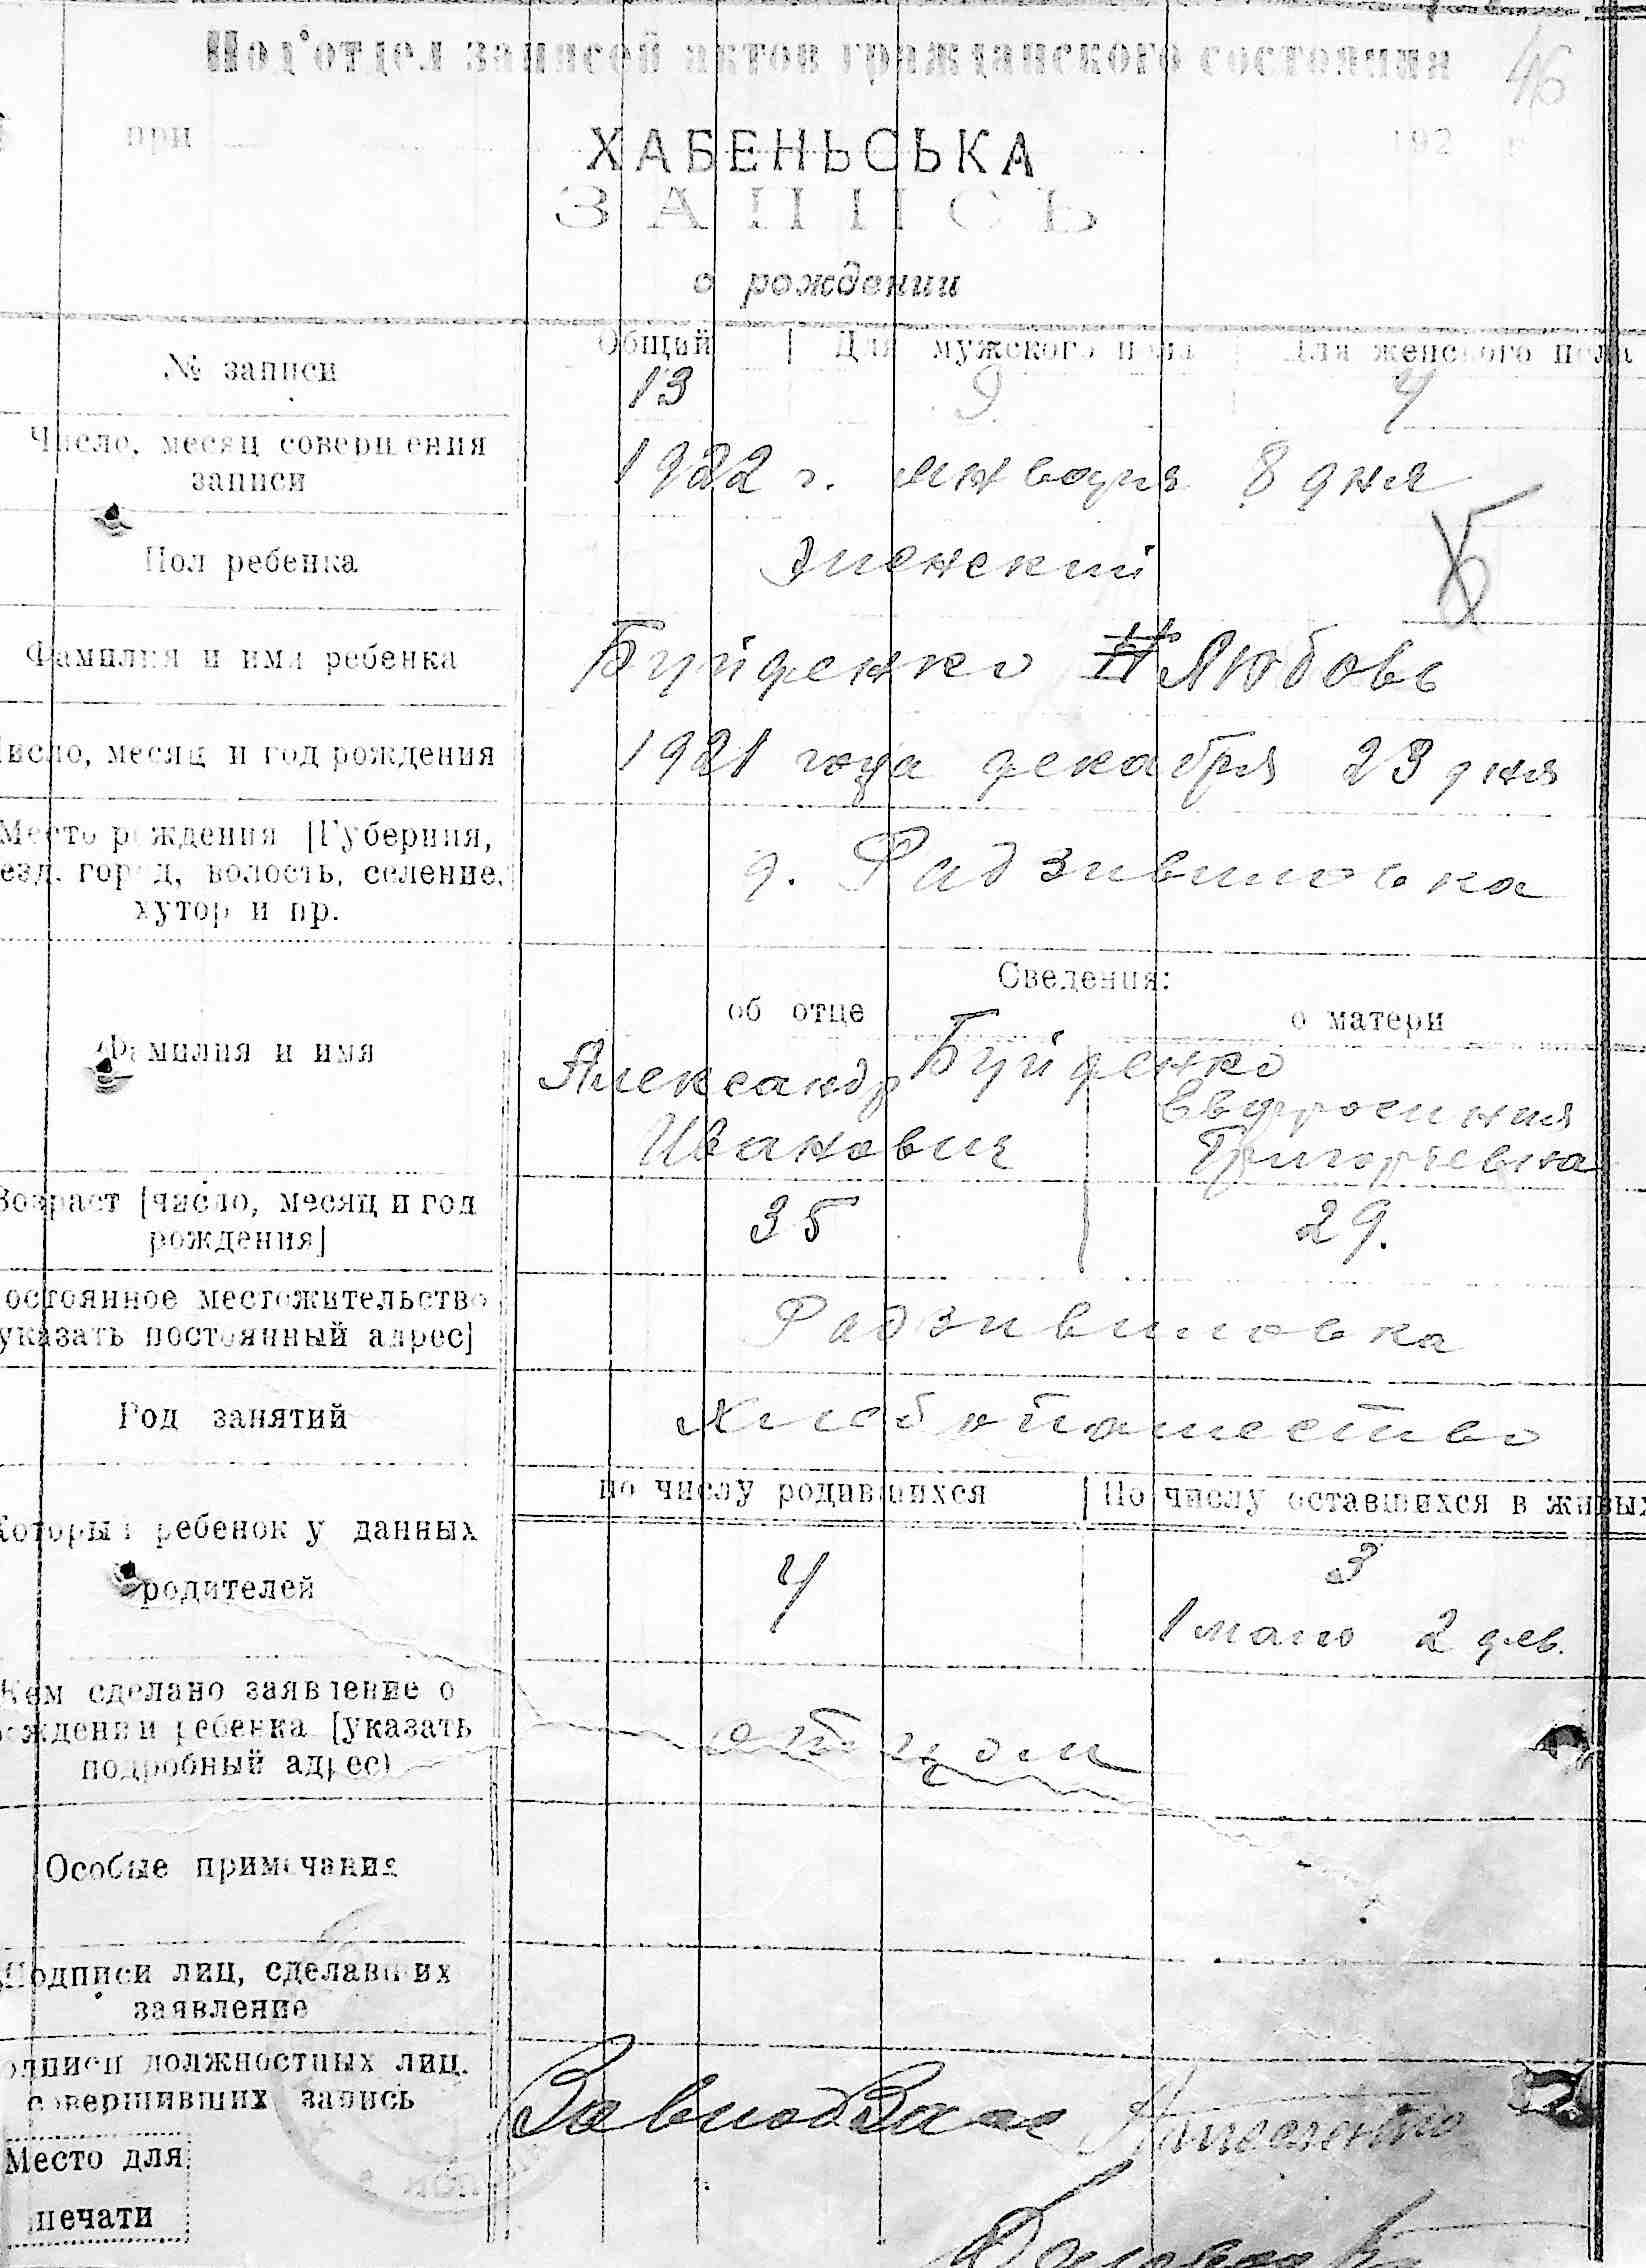 Под'отдел записей актов гражданского состояния 46
при 192 г
ХАБЕНЬСЬКА
ЗАПИСЬ
о рождении
№ записи
Общий | Для мужского пола | Для женского пола
13 9 4
Число, месяц совершения
записи
1922 г. января 8 дня
Пол ребенка
женский
Фамилия и имя ребенка
Буйденко Любовь
Число, месяц и год рождения
1921 года декабря 23 дня
Место рождения [Губерния,
уезд, город, волость, селение,
хутор и пр.
д. Радзивиловка
Сведения:
об отце о матери
Фамилия и имя
Буйденко
Александр Евфросиния
Иванович Григорьевна
Возраст [число, месяц и год
рождения]
35 29.
Постоянное местожительство
указать постоянный адрес]
Радзивиловка
Род занятий
хлебопашество
По числу родившихся | По числу оставшихся в живых
Который ребенок у данных
родителей
4 3
1 маль 2 дев.
Кем сделано заявление о
рождении ребенка [указать
подробный адрес)
отцом
Особые примечания
Подписи лиц, сделавших
заявление
Подписи должностных лиц,
совершивших запись
Место для
печати